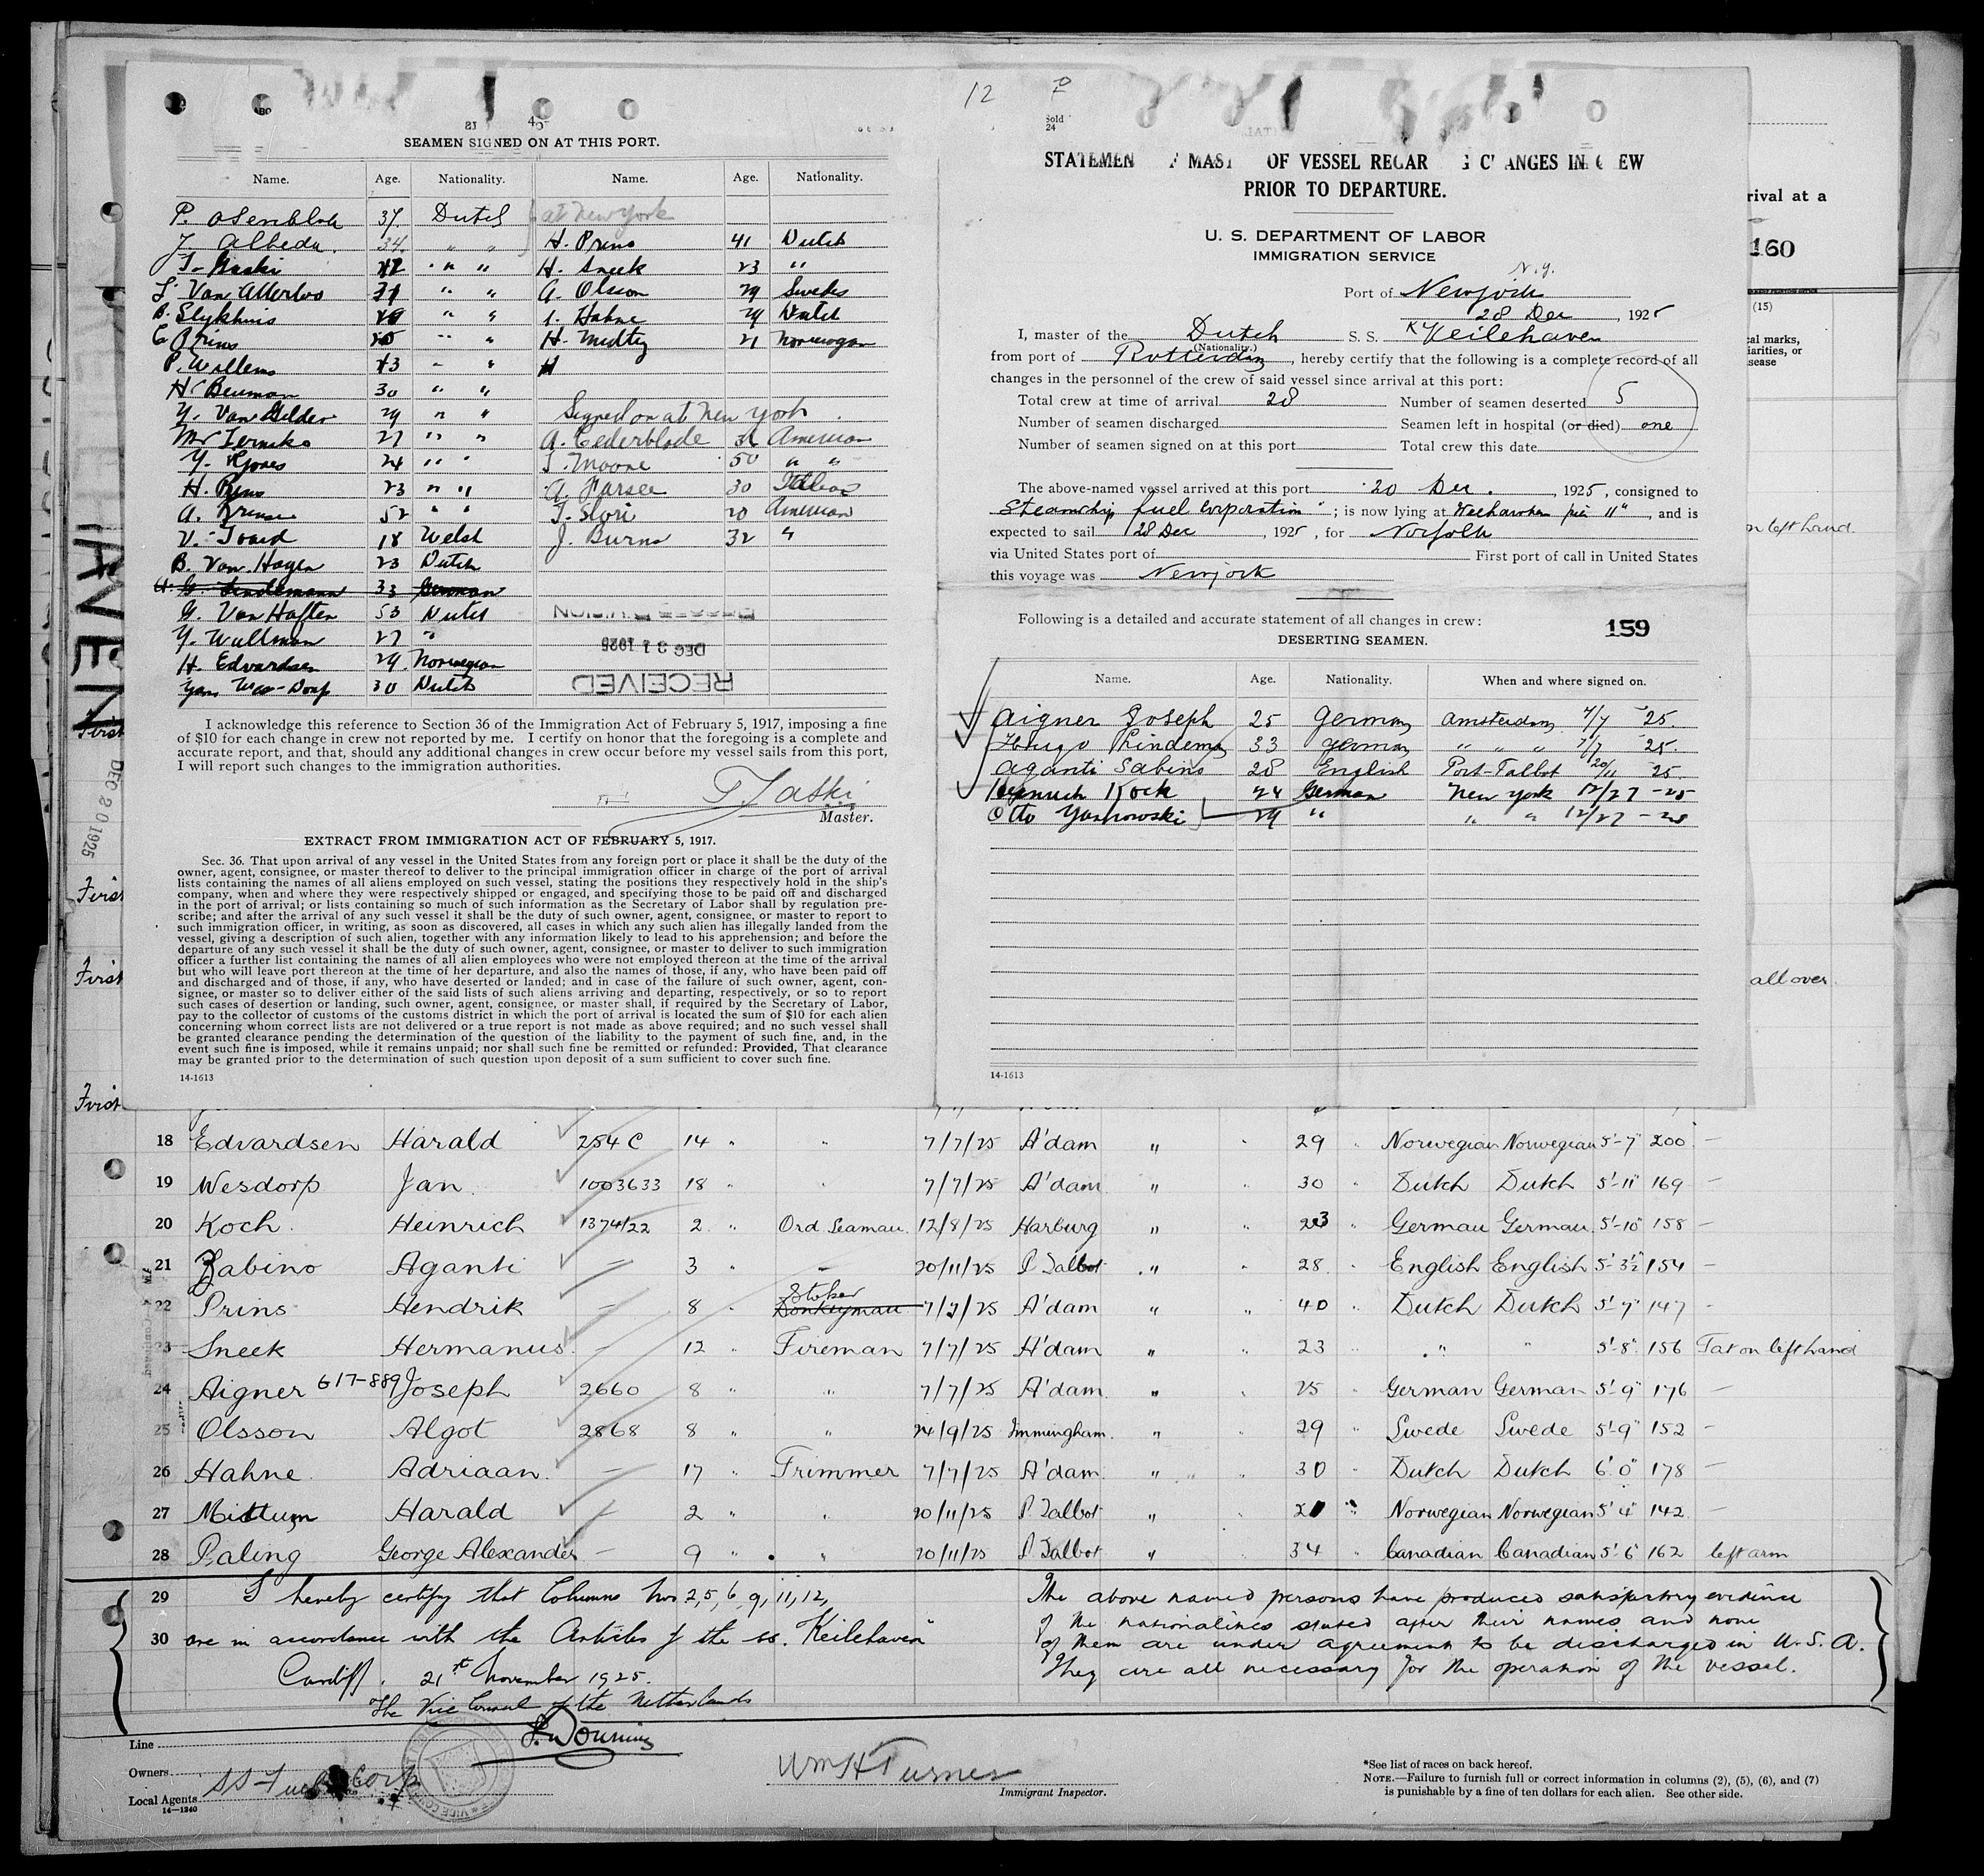 SEAMEN SIGNED ON AT THIS PORT.
Name. Age. Nationality. Name. Age. Nationality.
P. 37 Dutch at New york
J. Albeda. 34 " " H. Prins 41 Dutch
T. Gaski 42 " " H. Sneek 23 "
Van Atterloo 31 " " A. Olsson 29 Swedes
B. Slykhuis " " Hahne 29 Dutch
C Prins " " H. 21 Norwegan
P. Willems 43 " " H
H Beuman 30 " "
Y. Van Gelder 29 " " Signed on at New york
27 " " A. Cederblade American
Y. 24 " " T. Moore 50 " "
H. Prins 23 " " A. 30
A. 52 " " T. 20 American
V. 18 Welsh J. Burns 32 "
B. Van. Hagen 23 Dutch
H. G. Lindemann 33 German
G. Van Haften 53 Dutch
Y. Wullman 27 "
H. Edvardsen 29 Norwegian
30 Dutch
DEC 31 1925
RECEIVED
I acknowledge this reference to Section 36 of the Immigration Act of February 5, 1917, imposing a fine
of $10 for each change in crew not reported by me. I certify on honor that the foregoing is a complete and
accurate report, and that, should any additional changes in crew occur before my vessel sails from this port,
I will report such changes to the immigration authorities.
Master.
EXTRACT FROM IMMIGRATION ACT OF FEBRUARY 5, 1917.
Sec. 36. That upon arrival of any vessel in the United States from any foreign port or place it shall be the duty of the
owner, agent, consignee, or master thereof to deliver to the principal immigration officer in charge of the port of arrival
lists containing the names of all aliens employed on such vessel, stating the positions they respectively hold in the ship's
company, when and where they were respectively shipped or engaged, and specifying those to be paid off and discharged
in the port of arrival; or lists containing so much of such information as the Secretary of Labor shall by regulation pre-
scribe; and after the arrival of any such vessel it shall be the duty of such owner, agent, consignee, or master to report to
such immigration officer, in writing, as soon as discovered, all cases in which any such alien has illegally landed from the
vessel, giving a description of such alien, together with any information likely to lead to his apprehension; and before the
departure of any such vessel it shall be the duty of such owner, agent, consignee, or master to deliver to such immigration
officer a further list containing the names of all alien employees who were not employed thereon at the time of the arrival
but who will leave port thereon at the time of her departure, and also the names of those, if any, who have been paid off
and discharged and of those, if any, who have deserted or landed; and in case of the failure of such owner, agent, con-
signee, or master so to deliver either of the said lists of such aliens arriving and departing, respectively, or so to report
such cases of desertion or landing, such owner, agent, consignee, or master shall, if required by the Secretary of Labor,
pay to the collector of customs of the customs district in which the port of arrival is located the sum of $10 for each alien
concerning whom correct lists are not delivered or a true report is not made as above required; and no such vessel shall
be granted clearance pending the determination of the question of the liability to the payment of such fine, and, in the
event such fine is imposed, while it remains unpaid; nor shall such fine be remitted or refunded: Provided, That clearance
may be granted prior to the determination of such question upon deposit of a sum sufficient to cover such fine.
14-1613
12
STATEMEN MAST OF VESSEL REGAR G C ANGES IN C EW
PRIOR TO DEPARTURE.
U. S. DEPARTMENT OF LABOR
IMMIGRATION SERVICE
N.y.
Port of Newyork
28 Dec , 1925
I, master of the Dutch S. S. Keilehaven
(Nationality.)
from port of Rotterdam , hereby certify that the following is a complete record of all
changes in the personnel of the crew of said vessel since arrival at this port:
Total crew at time of arrival 28 Number of seamen deserted 5
Number of seamen discharged Seamen left in hospital (or died) one
Number of seamen signed on at this port Total crew this date
The above-named vessel arrived at this port 20 Dec. , 1925, consigned to
Steamship fuel Corporation" ; is now lying at Weehawken pier 11" , and is
expected to sail 28 Dec , 1925, for Norfolk
via United States port of First port of call in United States
this voyage was Newyork
Following is a detailed and accurate statement of all changes in crew:
159
DESERTING SEAMEN.
Name. Age. Nationality. When and where signed on.
Aigner Joseph 25 German Amsterdam 7/7 25.
33 german " " " 7/7 25.
Aganti Sabino 28 English Port-Talbot 20/11 25
Heynrich Kock 24 German New york 12/27 - 25
Otto Yankowski 29 " " " 12/27 - 25
14-1613
rival at a
160
(15)
cal marks,
iarities, or
sease
n left hand.
all over.
DEC 20 1925
First
First
First
First
18 Edvardsen Harald 254 C 14 " " 7/7/25 A'dam " " 29 " Norwegian Norwegian 5'-7" 200 -
19 Wesdorp Jan. 1003633 18 " " 7/7/25 A'dam " " 30 " Dutch Dutch 5'-11" 169 -
20 Koch. Heinrich 1374/22 2 " Ord. Seaman. 12/8/25 Harburg " " 23 " German German 5'-10" 158 -
21 Zabino Aganti - 3 " - 20/11/25 P Talbot " " 28 " English English 5'-3½" 154 -
22 Prins Hendrik - 8 " Stoker Donkeyman 7/7/25 A'dam " " 40 " Dutch Dutch 5'-7" 147 -
23 Sneek Hermanus. - 12 " Fireman 7/7/25 A'dam " " 23 " " " 5'-8" 156 Tat on left hand
24 Aigner 617-889 Joseph 2660 8 " " 7/7/25 A'dam. " " 25 " German German 5'-9" 176 -
25 Olsson Algot 2868 8 " " 24/9/25 Immingham. " " 29 " Swede Swede 5'-9" 152 -
26 Hahne. Adriaan. - 17 " Trimmer 7/7/25 A'dam. " " 30 " Dutch Dutch 6'.0" 178 -
27 Harald - 2 " " 20/11/25 P Talbot " " 21 " Norwegian Norwegian 5'4" 142 -
28 Paling George Alexander - 9 " " 20/11/25 P Talbot " " 34 " Canadian Canadian 5'-6" 162 left arm
29 I hereby certify that Columns Nos 2,5,6,9,11,12,
30 are in accordance with the Articles of the ss. "Keilehaven"
Cardiff, 21st November 1925.
The Vice Consul of the Netherlands
The above named persons have produced satisfactory evidence
of the nationalities stated after their names and none
of them are under agreement to be discharged in U.S.A.
They are all necessary for the operation of the vessel.
Line
Owners
Local Agents SS Fuel Corp
14-1240
Wm H Turner
Immigrant Inspector.
*See list of races on back hereof.
NOTE.—Failure to furnish full or correct information in columns (2), (5), (6), and (7)
is punishable by a fine of ten dollars for each alien. See other side.